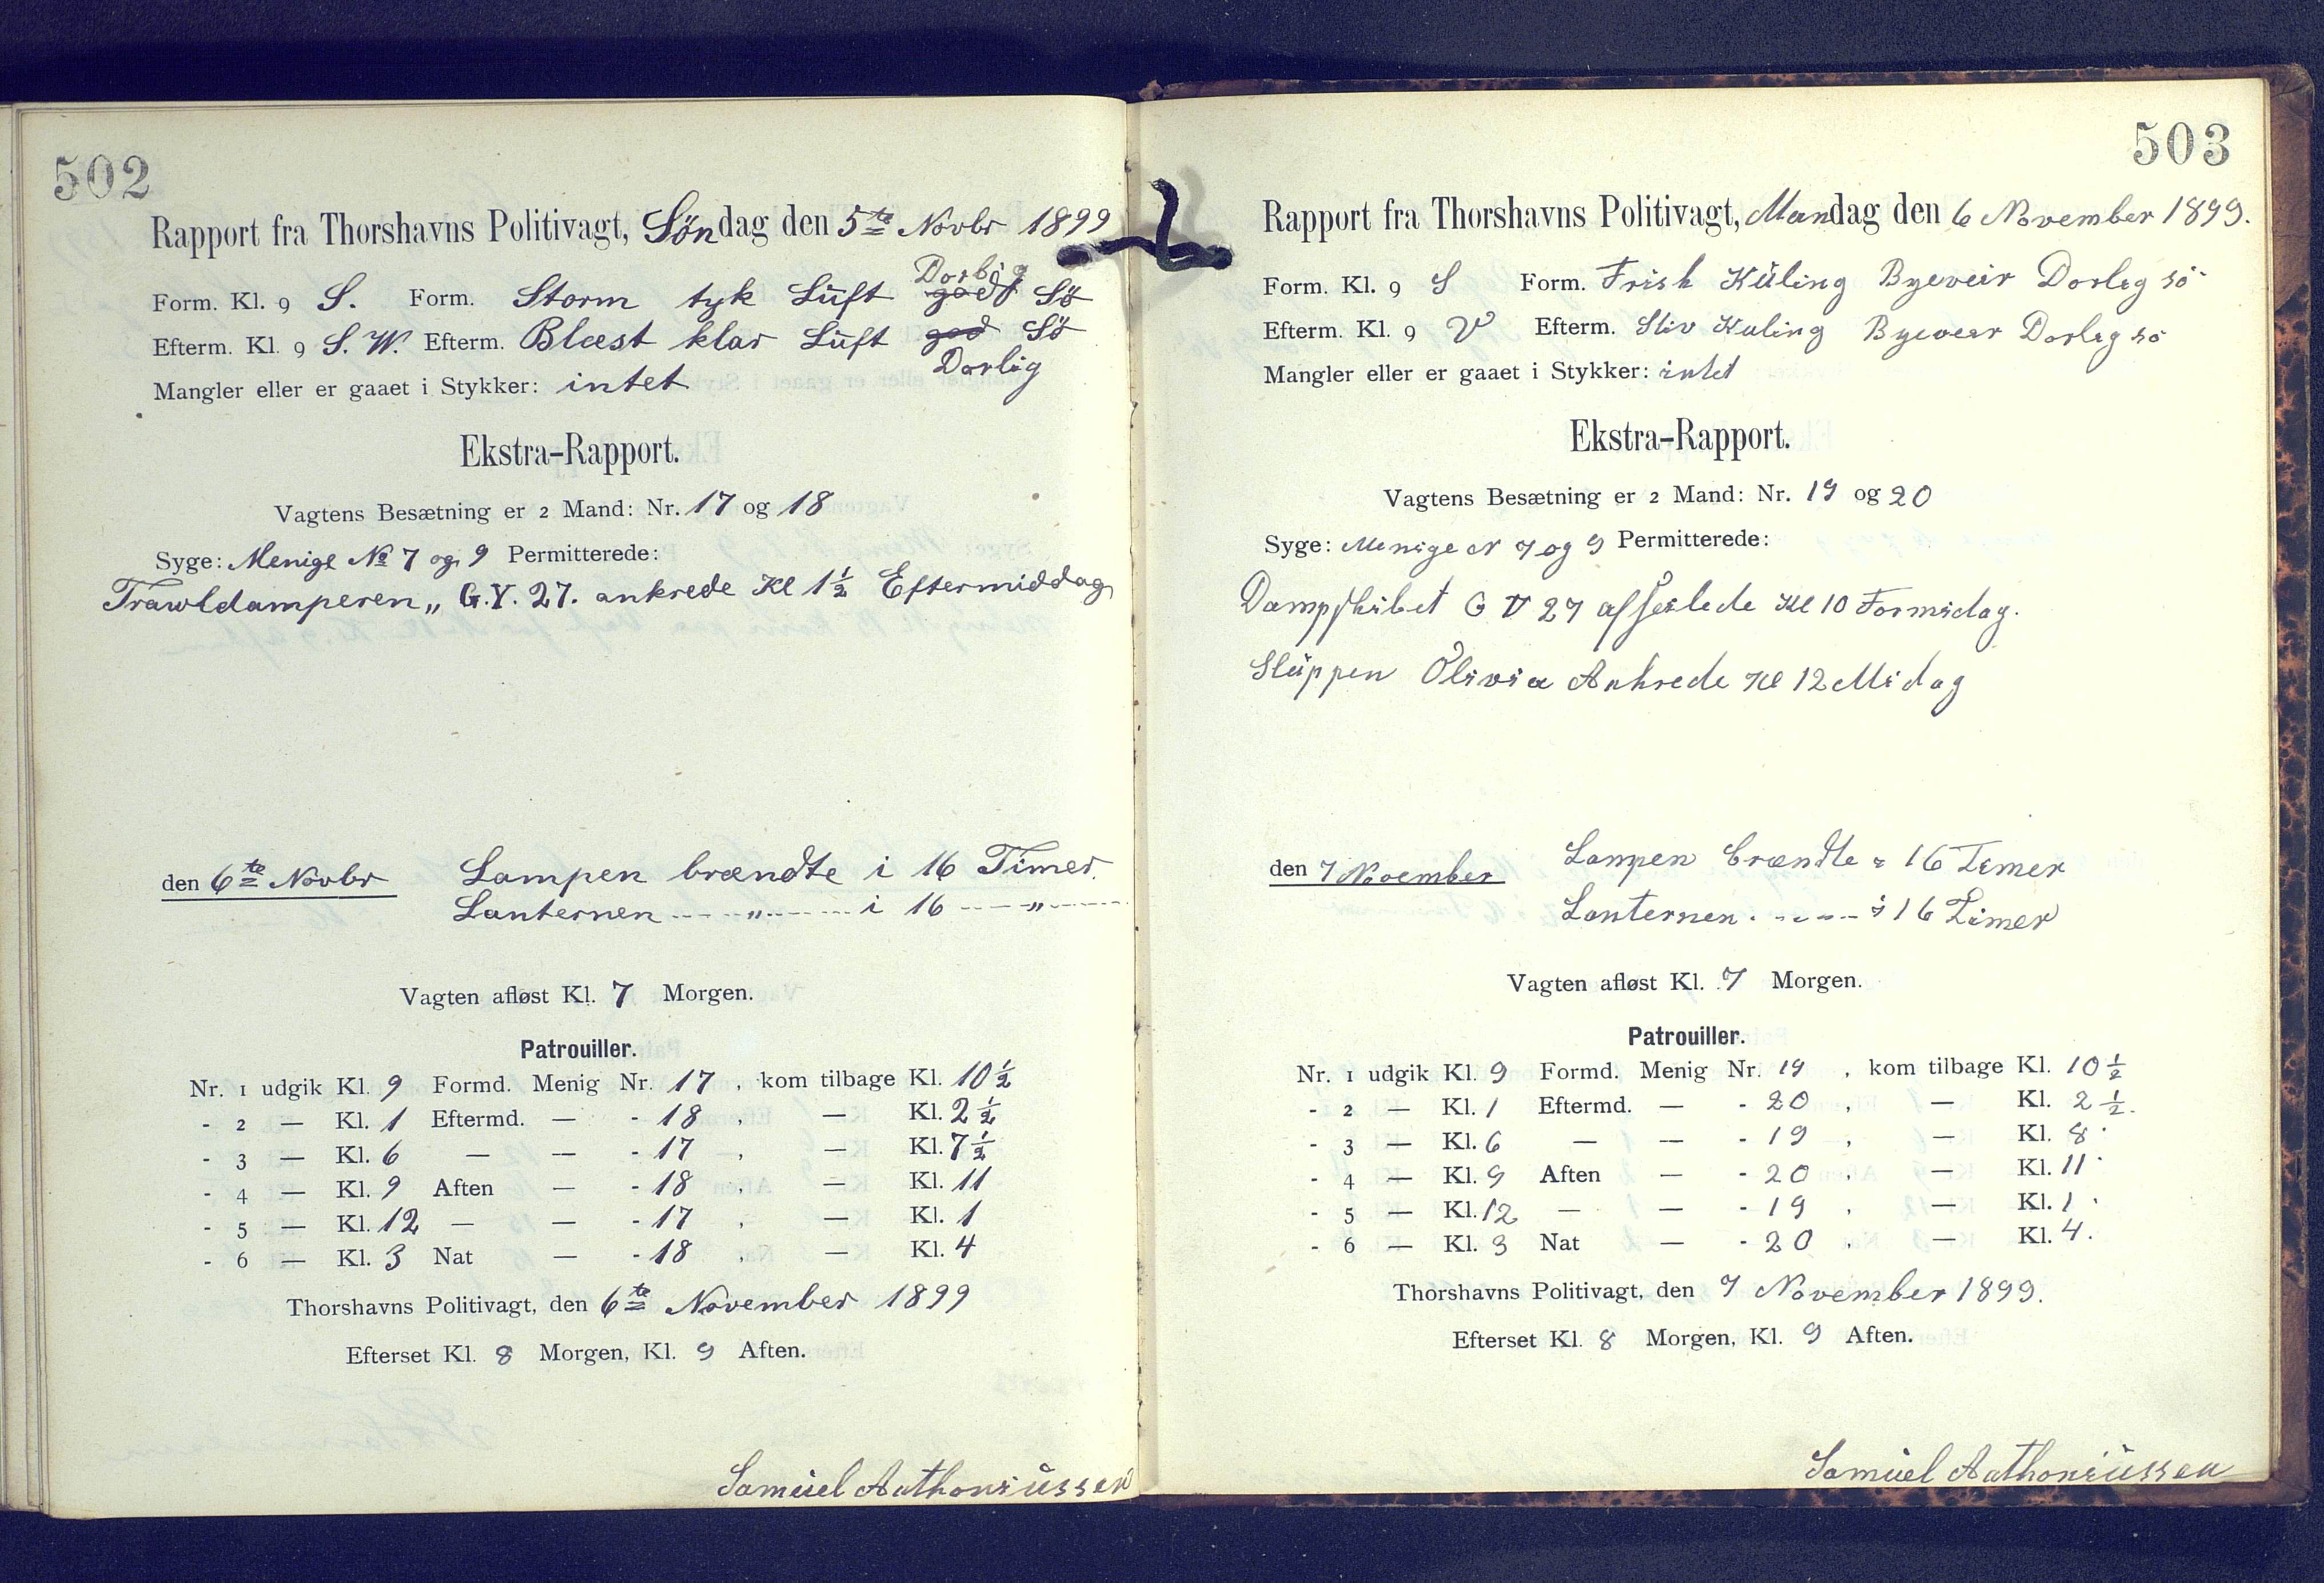 502
Rapport fra Thorshavns Politivagt, Söndag den 5te Novbr 1899
Form. Kl. 9 S. Form. Storm tyk Lüft godt Dorlig Sö
Efterm. Kl. 9 S. W. Efterm. Blæst klar Lüft god Dorlig Sö
Mangler eller er gaaet i Stykker: intet
Ekstra-Rapport.
Vagtens Besætning er 2 Mand: Nr. 17 og 18
Syge: Menige № 7 og 9 Permitterede:
Trawldamperen „ G.Y. 27. ankrede Kl 1½ Eftermiddag
den 6te Novbr Lampen brændte i 16 Timer.
Lanternen - - - „ - - - i 16 - - - „ - - -
Vagten afløst Kl. 7 Morgen.
Patrouiller.
Nr. 1 udgik Kl. 9 Formd. Menig Nr. 17 , kom tilbage Kl. 10½
- 2 — Kl. 1 Eftermd. — - 18 , — Kl. 2½
- 3 — Kl. 6 — — - 17 , — Kl. 7½
- 4 — Kl. 9 Aften — - 18 , — Kl. 11
- 5 — Kl. 12 — — - 17 , — Kl. 1
- 6 — Kl. 3 Nat — - 18 , — Kl. 4
Thorshavns Politivagt, den 6te November 1899
Efterset Kl. 8 Morgen, Kl. 9 Aften.
Samüel Anthoniüssen
503
Rapport fra Thorshavns Politivagt, Mandag den 6 November 1899.
Form. Kl. 9 S Form. Frish Küling Byeveir Dorleg sö
Efterm. Kl. 9 V Efterm. Stiv Kuling Byeveer Dorleg sö
Mangler eller er gaaet i Stykker: intet
Ekstra-Rapport.
Vagtens Besætning er 2 Mand: Nr. 19 og 20
Syge: Menige N 7 og 9 Permitterede:
Dampskibet G V 27 afseilede Kl 10 Formidag.
Slüppen Olivia Ankrede Kl 12 Midag
den 7 November Lampen brændte i 16 Timer
Lanternen . - - - - i 16 Timer
Vagten afløst Kl. 7 Morgen.
Patrouiller.
Nr. 1 udgik Kl. 9 Formd. Menig Nr. 19 , kom tilbage Kl. 10½
- 2 — Kl. 1 Eftermd. — - 20 , — Kl. 2½.
- 3 — Kl. 6 — — - 19 , — Kl. 8
- 4 — Kl. 9 Aften — - 20 , — Kl. 11
- 5 — Kl. 12 — — - 19 , — Kl. 1
- 6 — Kl. 3 Nat — - 20 , — Kl. 4.
Thorshavns Politivagt, den 7 November 1899.
Efterset Kl. 8 Morgen, Kl. 9 Aften.
Samüel Anthoniüssen